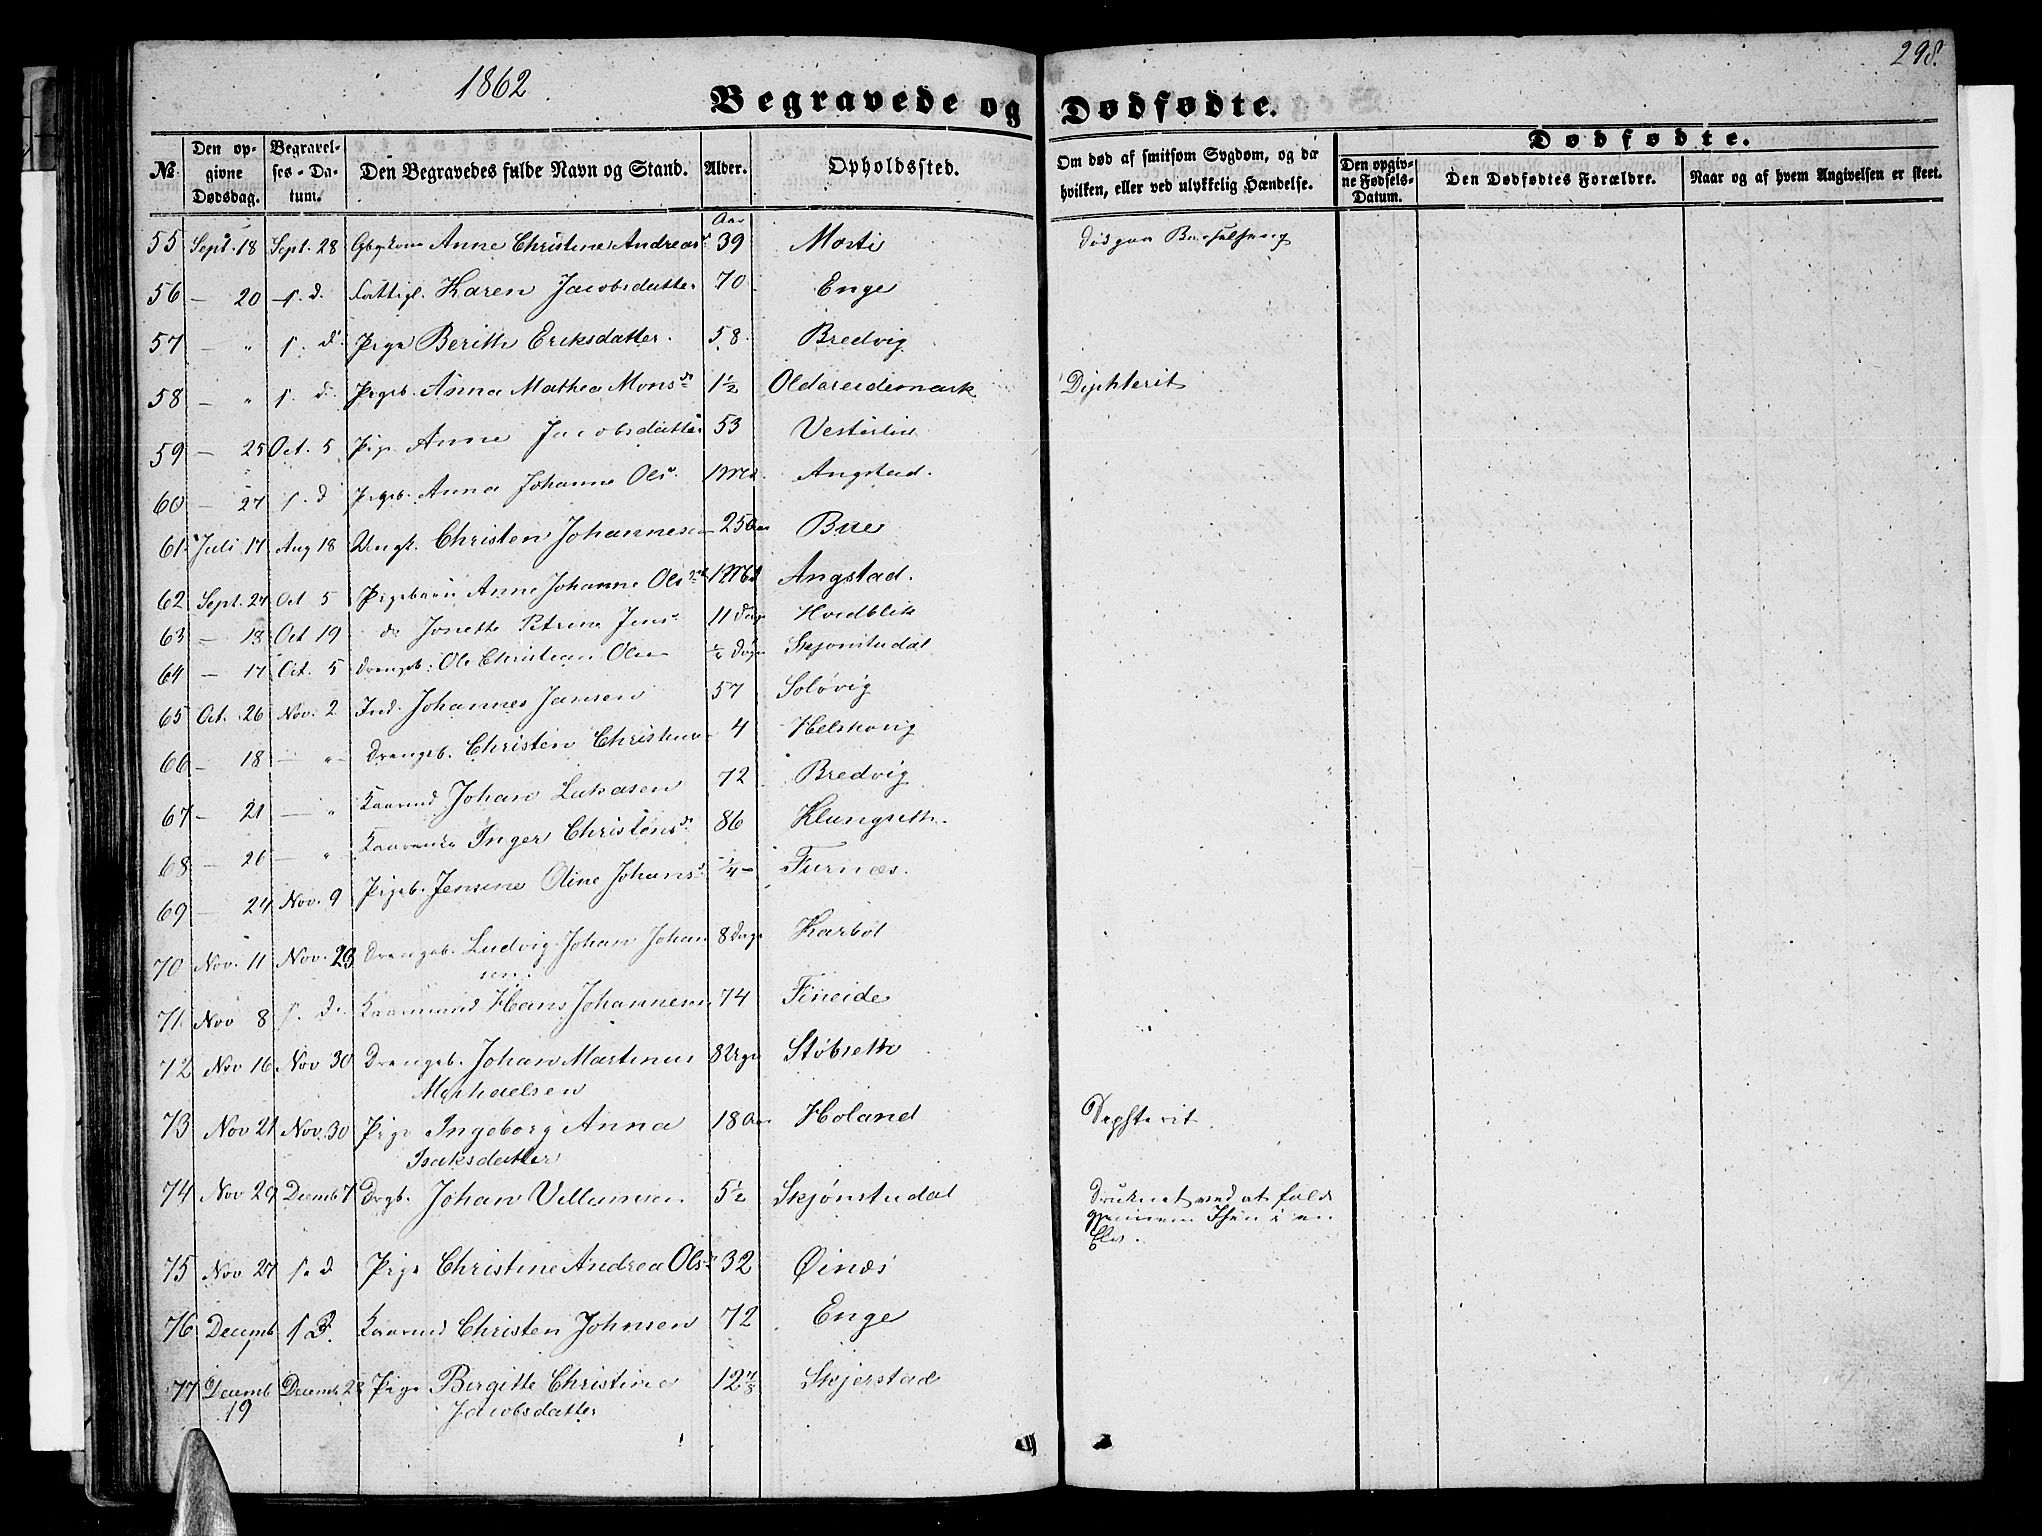 298.
1862
Begravede og Dødfødte.
Dødfødte.
No. Den opgivne Dødsdag. Begravelses-Datum. Den Begravedes fulde Navn og Stand. Alder. Opholdssted. Om død af smitsom Sygdom, og da hvilken, eller ved ulykkelig Hændelse. Den opgivne Fødsels-Datum. Den Dødfødtes Forældre. Naar og af hvem Angivelsen er skeet.
Aar
55 Sept. 18 Sept. 28 Anne Christine Andreas 39 Død paa Barselseng
56 — 20 s. d. Karen Jacobsdatter 70 Enge
57 — " s. d. Pige Berith Eriksdatter. 58. Bredvig
58 — " s. d. Pigeb. Anna Mathea Monsdr 1½ Oldereidemark Diphterit
59 — 25 Oct. 5 Pige Anne Jacobsdatter 53
60 — 27 s. d. Pigeb. Anna Johanne Ols 1 Md. Angstad.
61 Juli 17 Aug 18 Ungk. Christen Johannesen 25 Aar Bue
62 Sept. 27 Oct 5 Pigebarn Anne Johanne Ols 1 Md Angstad.
63 — 18 Oct 19 do Jonette Petrine Jens 11 Dage Hvedblik
64 — 17 Oct. 5 Drengeb. Ole Christian Olsen ½ Dag Skjønstudal
65 Oct. 26 Nov. 2 Ind. Johannes Jansen 57 Soløvig
66 — 18 — " — Drengeb. Christen Christens 4
67 — 21 — " Kaarmd Johan Lukasen 72 Bredvig
68 — 26 — " Inger Christensdr 86 Klungseth.
69 — 24 Nov. 9 Pigeb. Jensine Oline Johans ¼ — Furnæs.
70 Nov. 11 Nov. 23 Drengeb. Ludvig Johan Johan 8 Dage Karbøl
sen.
71 Nov 8 s. d. Kaarmand Hans Johannesen 74 Fineide
72 Nov 16 Nov 30 Drengeb. Johan Martinus 8 Uger Støbseth
73 Nov 21 Nov. 30 Pige Ingeborg Anna 18 Aar Holand
Isaksdatter
74 Nov 29 Decemb 7 Drgb. Johan Villumsen 5½ Skjønstudal Druknet ved at falde
gjennem Isen i en
Elv.
75 Nov 27 s. d Pige Christine Andrea Ols 32 Øinæs
76 Decemb Kaarmd Christen Johnsen 72 Enge
77 Decemb Decemb 28 Pige Birgitte Christine 12 7/8 Skjerstad
19 Jacobsdatter